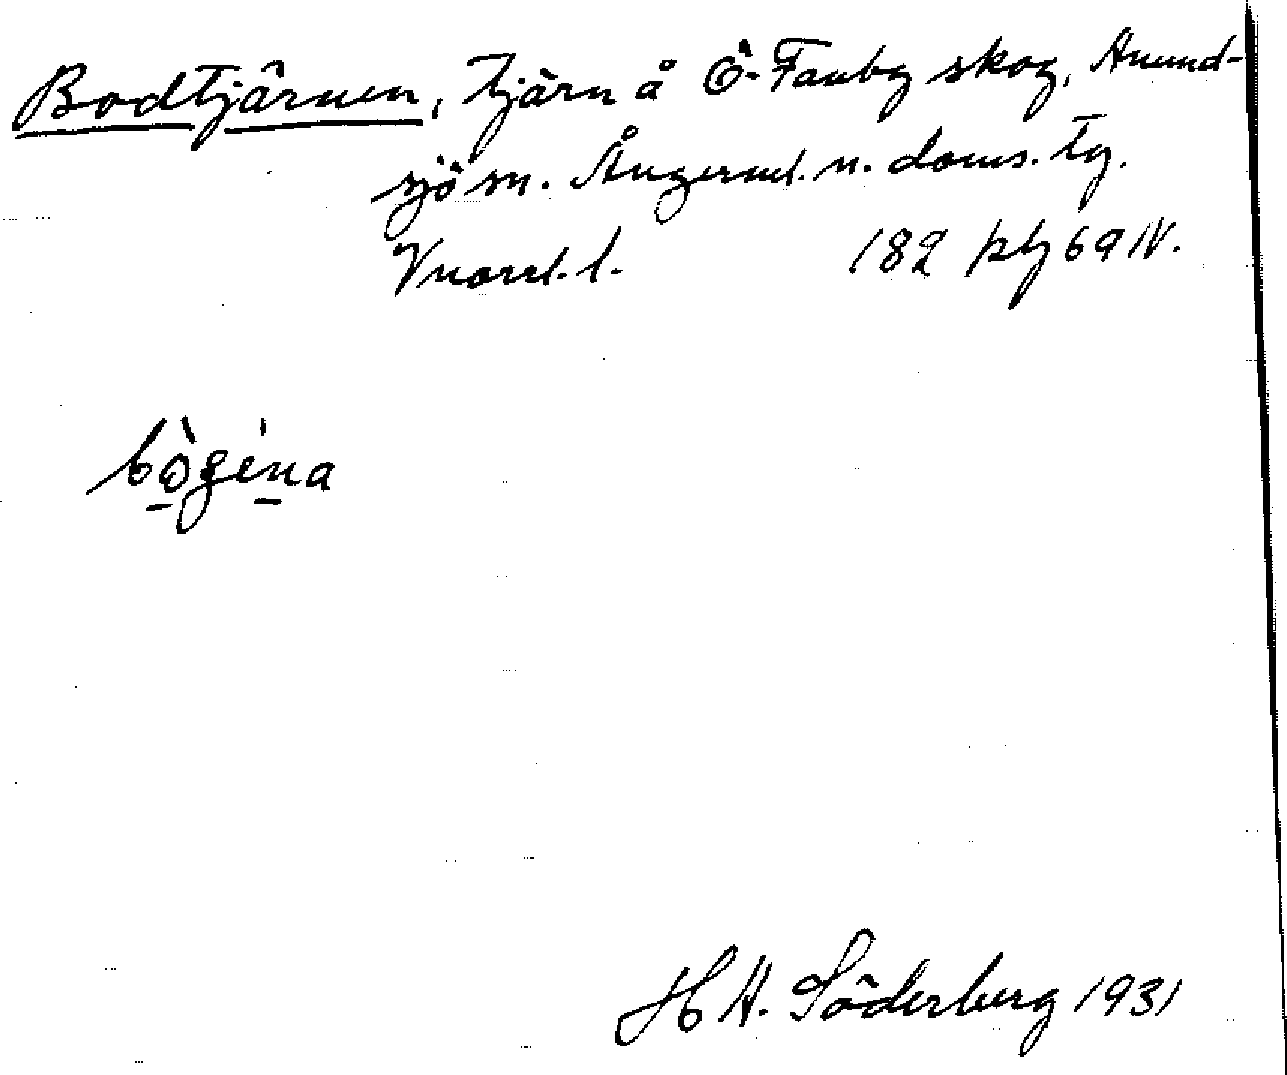 Bodtjärnen, tjärn å Ö. Tanby skog, Anund-
sjö sn. Ångerml. n. doms. tg.
Vnorrl. l. 182 ptg 69 IV.
bògena
H A. Söderberg 1931